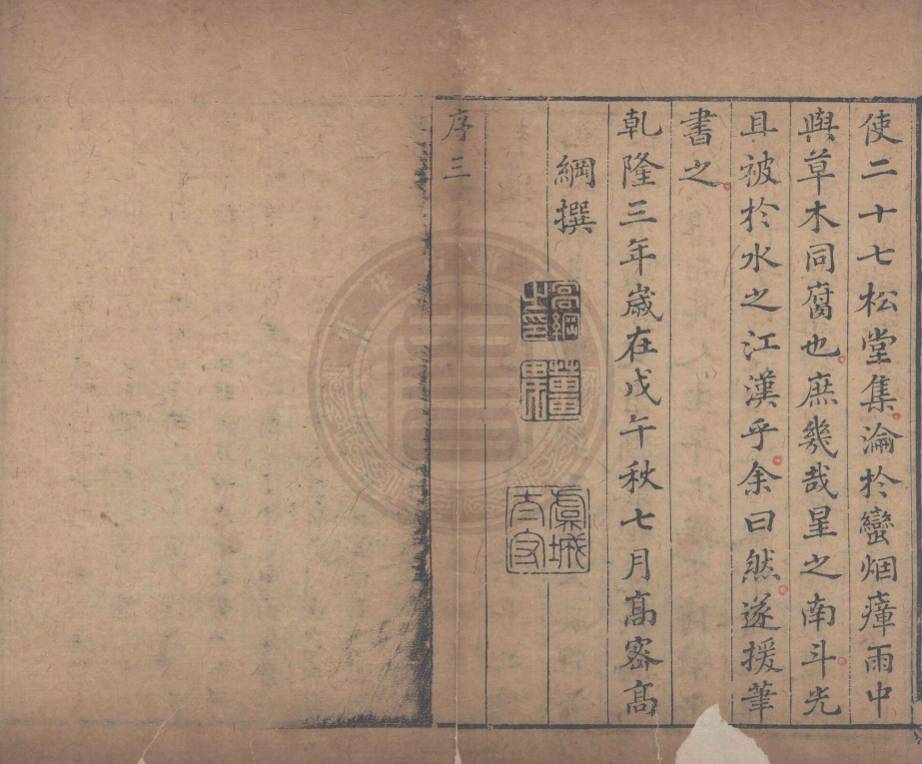 使二十七松堂集淪於蠻烟瘴雨中
與草木同腐也庶幾哉星之南斗光
且被於水之江漢乎余曰然遂援筆
書之
乾隆三年歲在戊午秋七月髙密髙
綱撰
序三